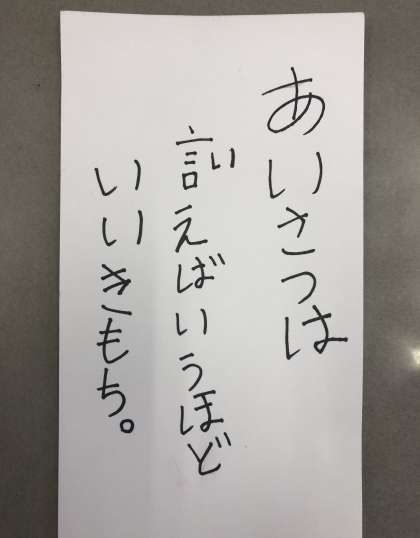 あいさつは
言えばいうほど
いいきもち。